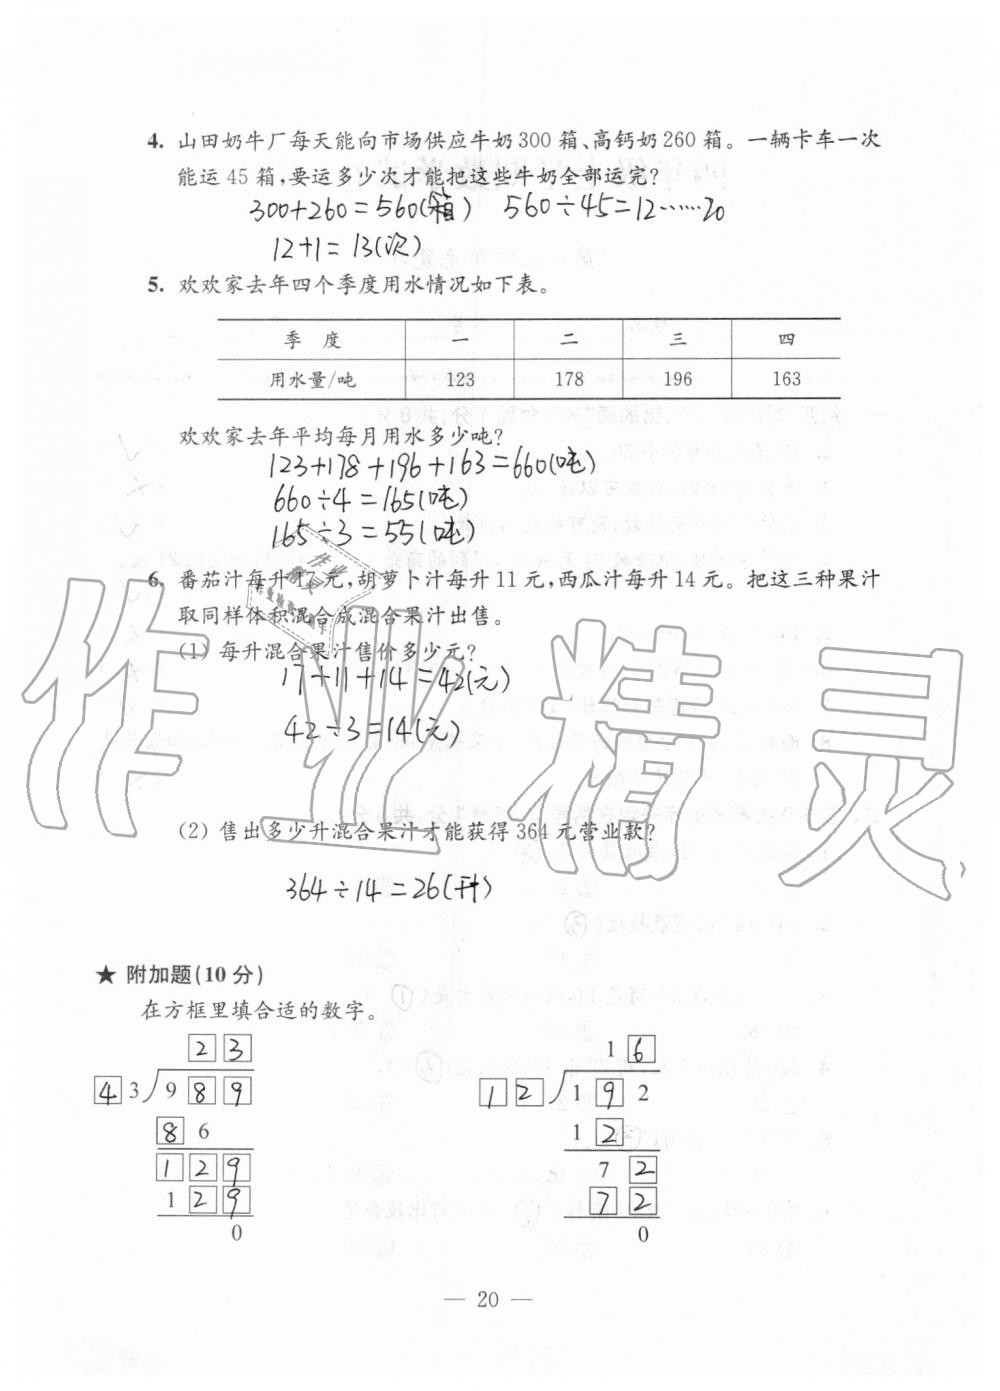 4. 山田奶牛厂每天能向市场供应牛奶300箱、高钙奶260箱。一辆卡车一次
能运45箱,要运多少次才能把这些牛奶全部运完?
300+260=560(箱) 560÷45=12……20
12+1=13(次)
5. 欢欢家去年四个季度用水情况如下表。
季度 一 二 三 四
用水量/吨 123 178 196 163
欢欢家去年平均每月用水多少吨?
123+178+196+163=660(吨)
660÷4=165(吨)
165÷3=55(吨)
6. 番茄汁每升17元,胡萝卜汁每升11元,西瓜汁每升14元。把这三种果汁
取同样体积混合成混合果汁出售。
(1) 每升混合果汁售价多少元?
17+11+14=42(元)
42÷3=14(元)
(2) 售出多少升混合果汁才能获得364元营业款?
364÷14=26(升)
★ 附加题(10分)
在方框里填合适的数字。
2 3
4 3 9 8 9
8 6
1 2 9
1 2 9
0
1 6
1 2 1 9 2
1 2
7 2
7 2
0
— 20 —
作业精灵